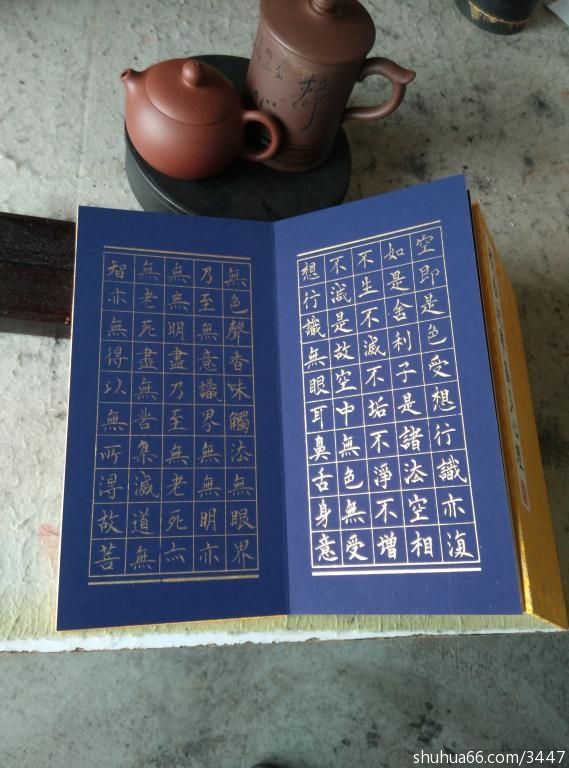 空即是色受想行識亦復
如是舍利子是諸法空相
不生不滅不垢不淨不增
不減是故空中無色無受
想行識無眼耳鼻舌身意
無色聲香味觸法無眼界
乃至無意識界無無明亦
無無明盡乃至無老死亦
無老死盡無苦集滅道無
智亦無得以無所得故菩
shuhua66.com/3447